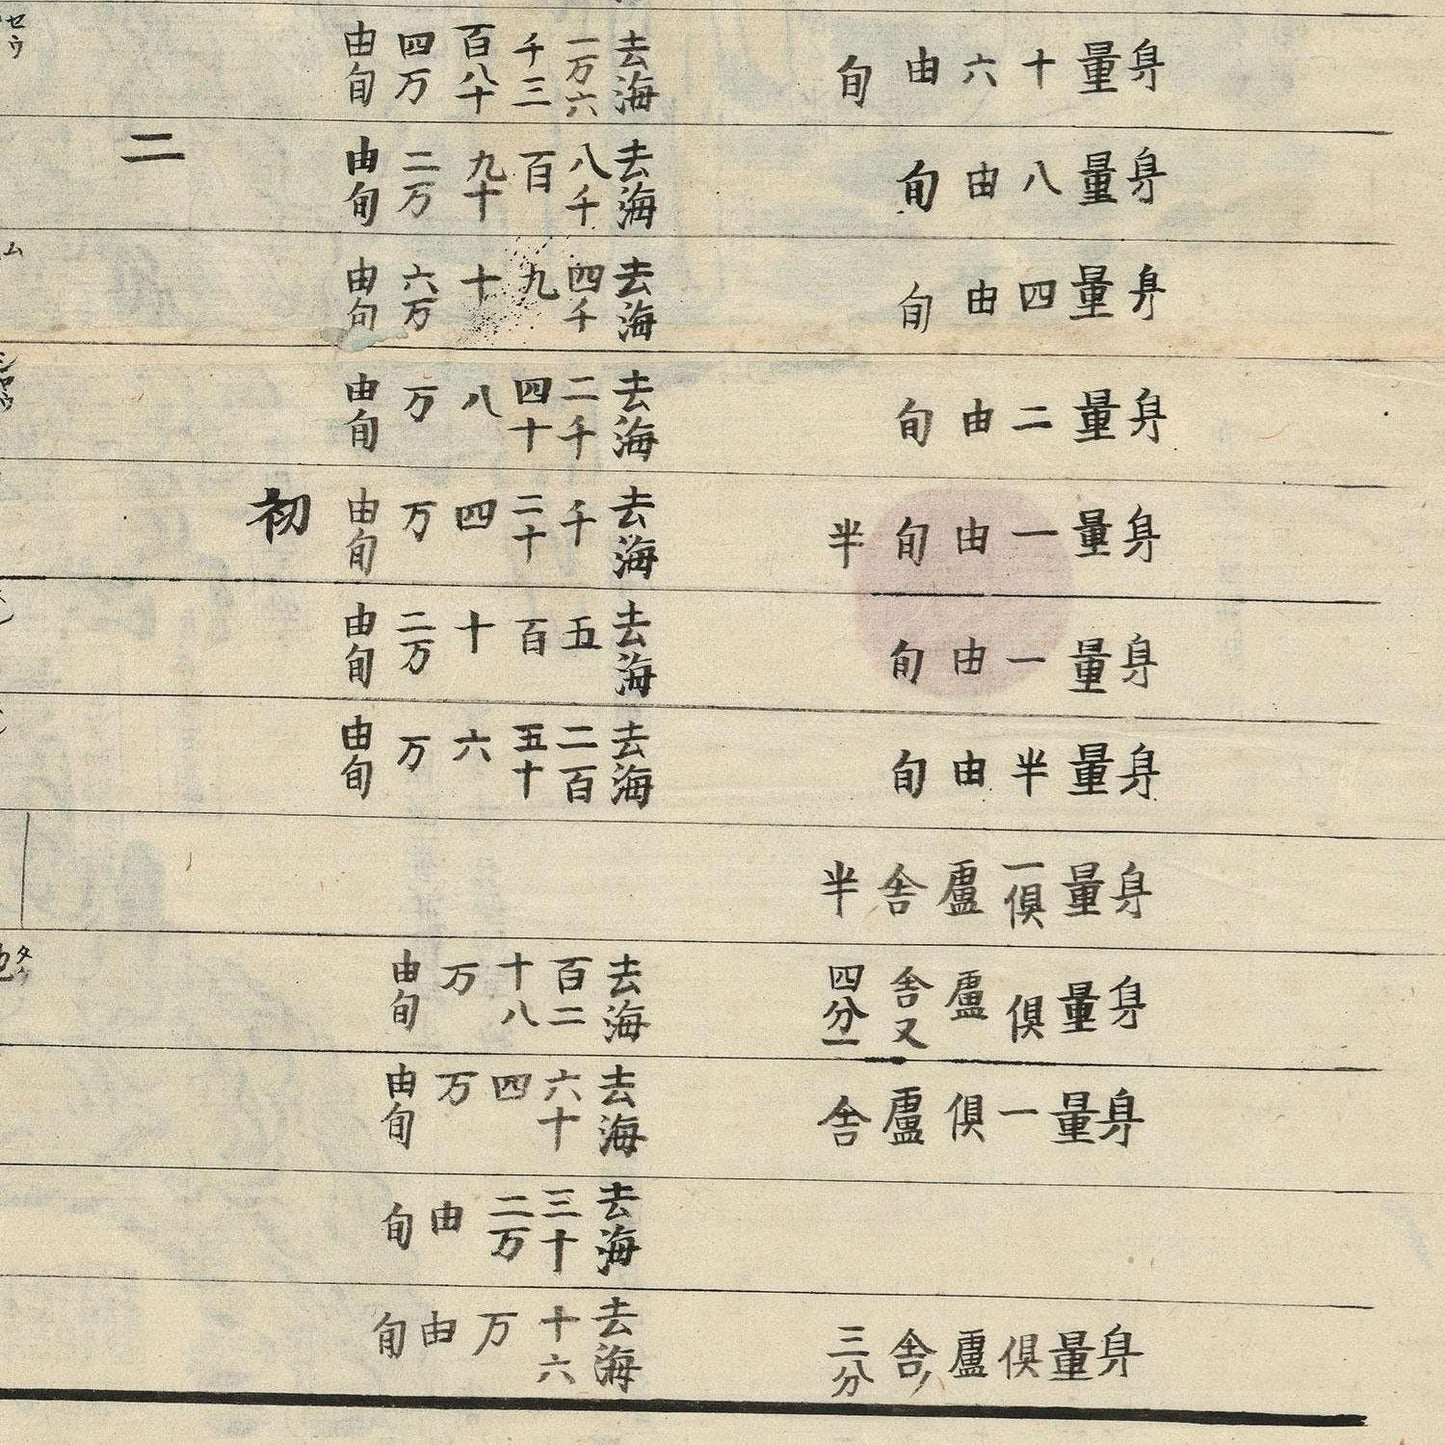 身量十六由旬
去海一万六千三百八十四万由旬
セウ
身量八由旬
去海八千百九十二万由旬
二
身量四由旬
去海四千九十六万由旬
ム
身量二由旬
去海二千四十八万由旬
身量一由旬半
去海千二十四万由旬
初
身量一由旬
去海五百十二万由旬
身量半由旬
去海二百五十六万由旬
身量一俱盧舎半
身量俱盧舎又四分一
去海百二十八万由旬
タウ
身量一俱盧舎
去海六十四万由旬
去海三十二万由旬
身量俱盧舎三分
去海十六万由旬